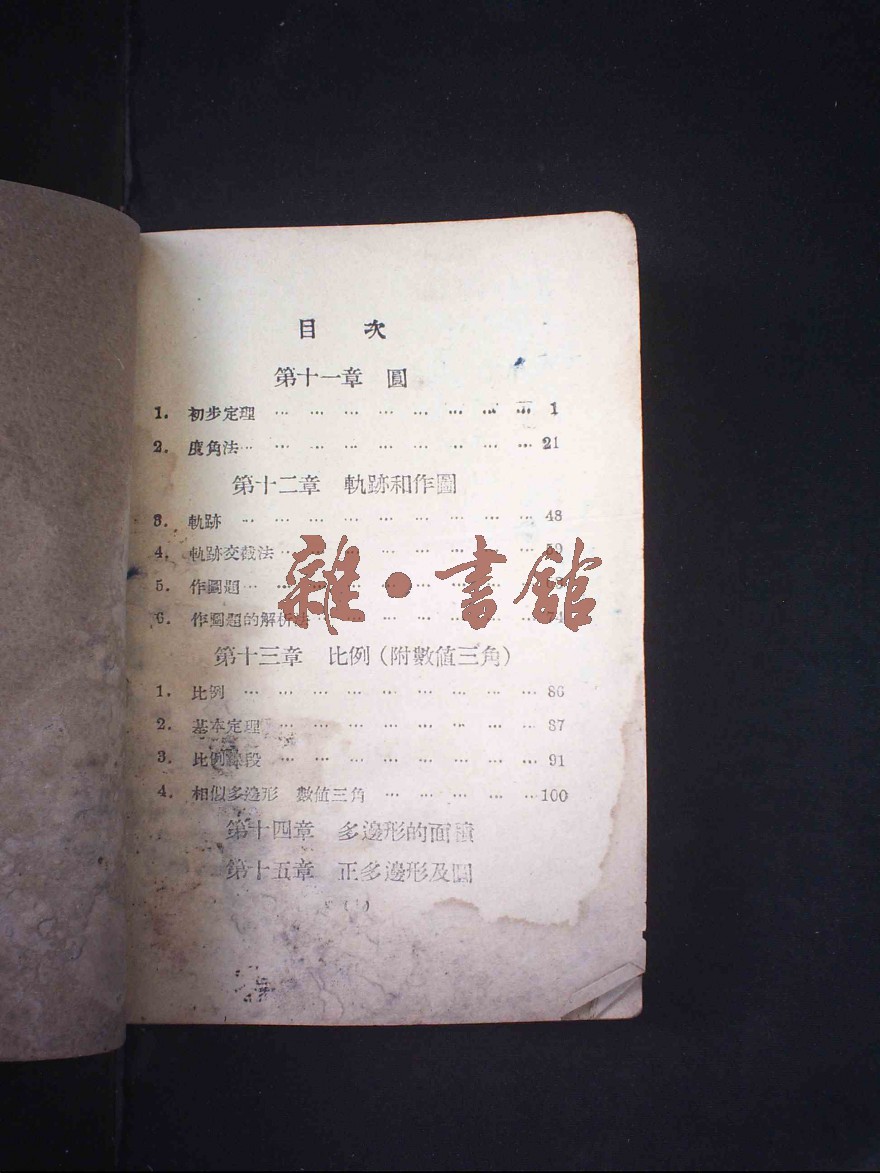 目 次
第十一章 圓
1. 初步定理 … … … … … … … … 1
2. 度角法… … … … … … … … … 21
第十二章 軌跡和作圖
3. 軌跡 … … … … … … … … … 48
4. 軌跡交截法… … … … … … … …
5. 作圖題… … … … … … … … …
6. 作圖題的解析法 … … … … … …
雜·書館
第十三章 比例(附數値三角)
1. 比例 … … … … … … … … … 86
2. 基本定理 … … … … … … … … 87
3. 比例線段 … … … … … … … … 91
4. 相似多邊形 數値三角 … … … … …100
第十四章 多邊形的面積
第十五章 正多邊形及圓
(1)